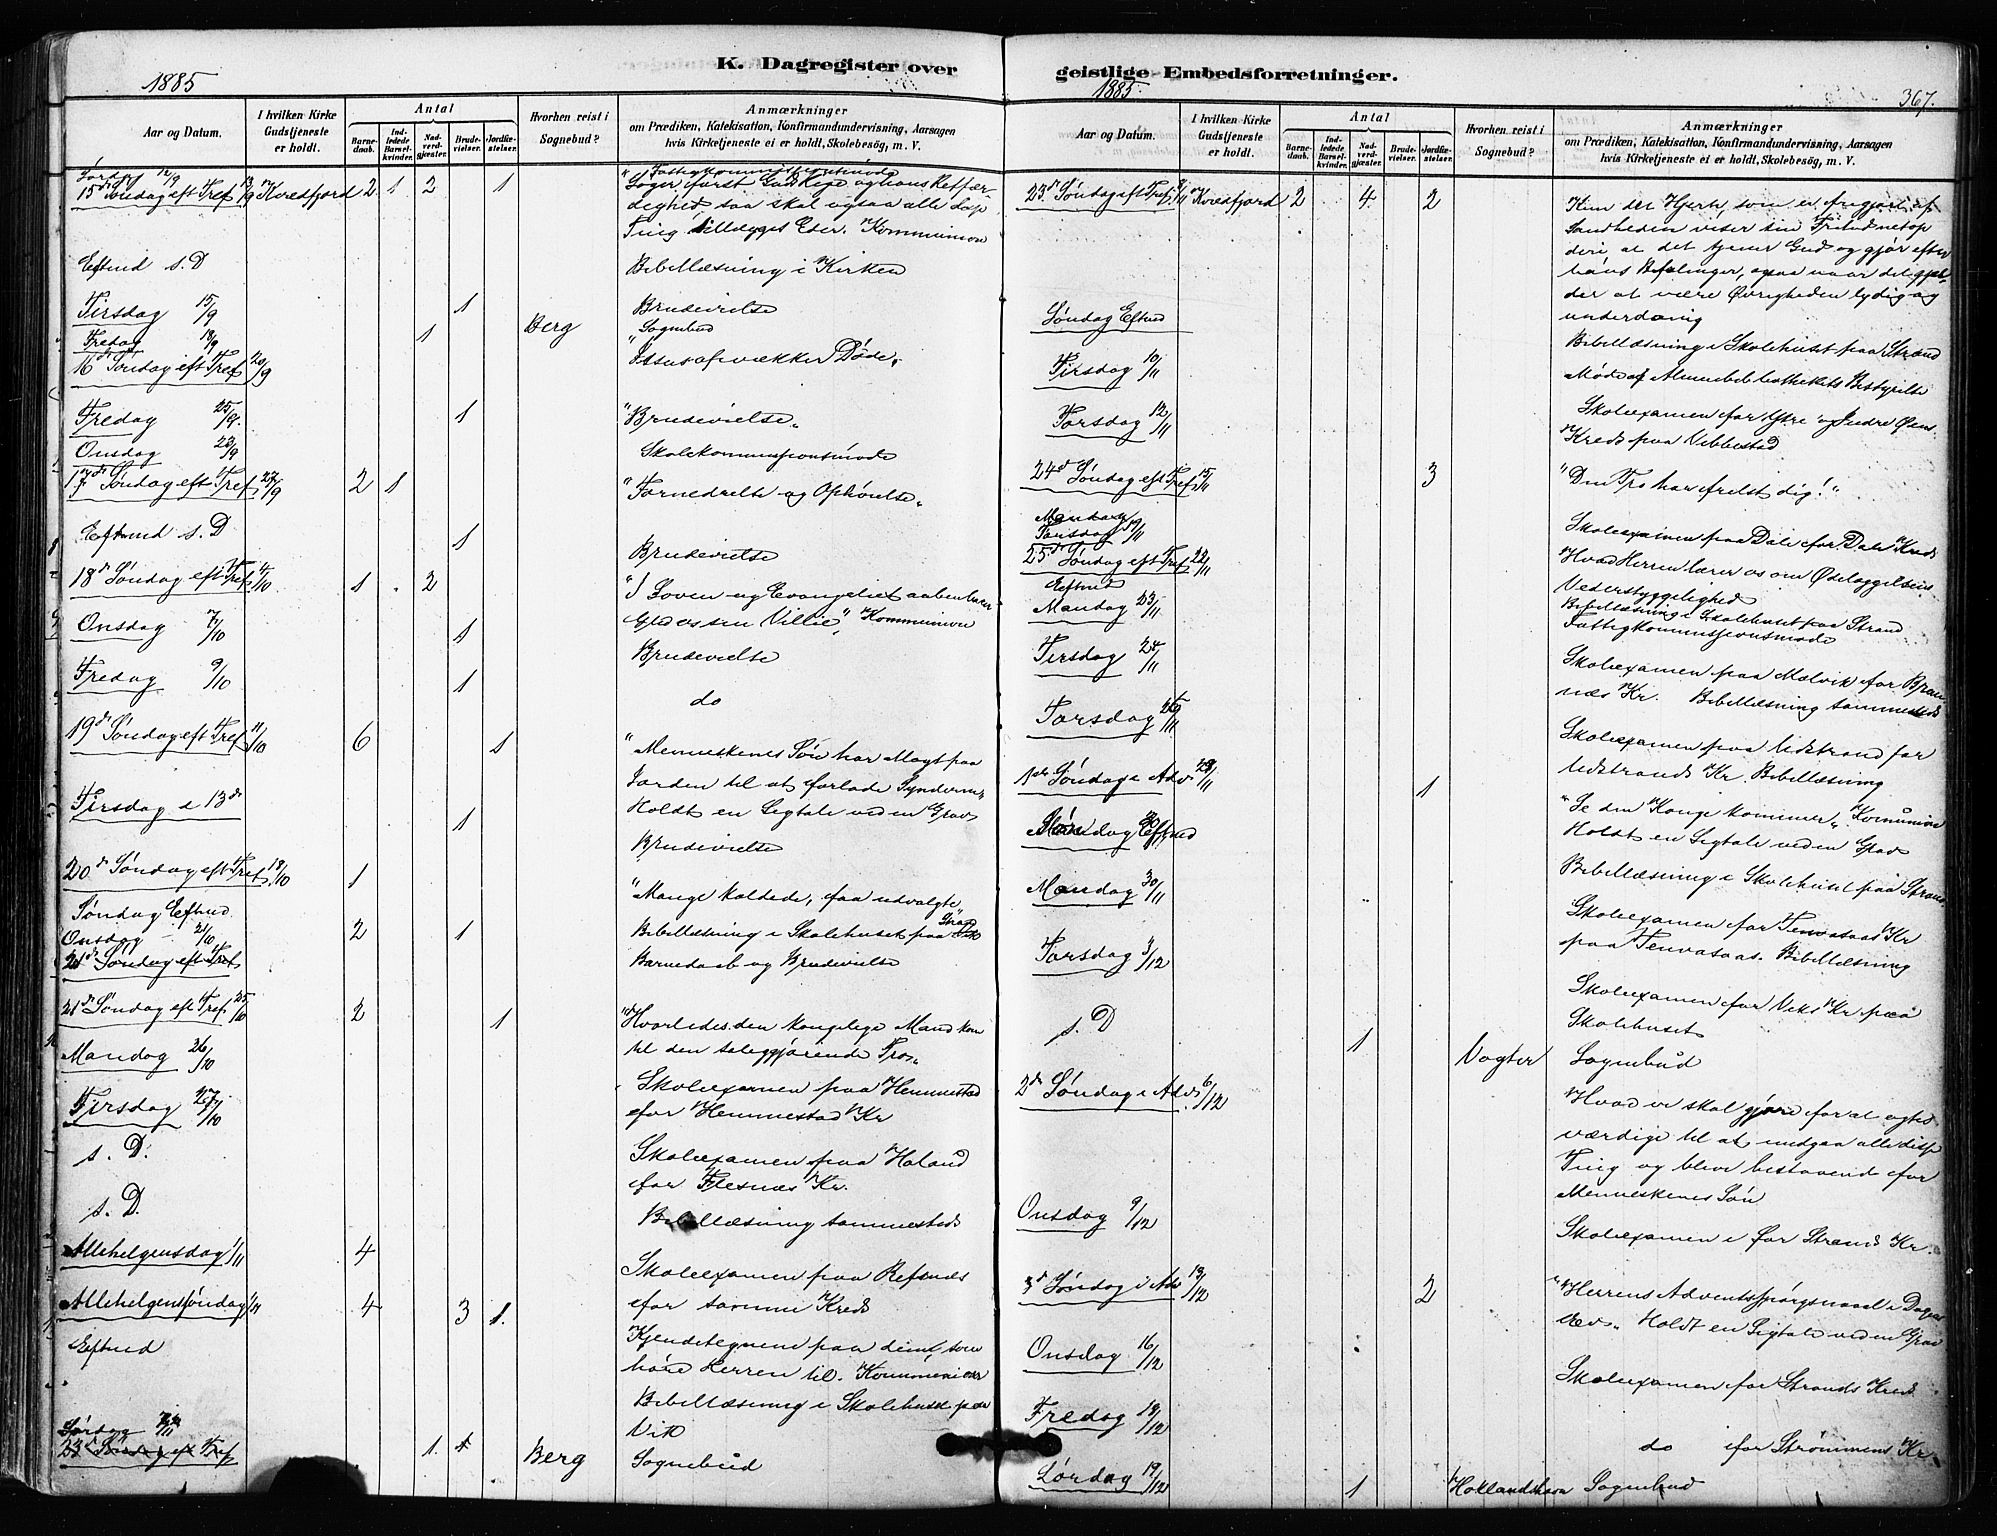 K. Dagregister over
geistlige Embedsforretninger.
1885
1885.
367.
Aar og Datum.
I hvilken Kirke Gudstjeneste er holdt.
Antal
Barnedaab.
Indledede Barselkvinder.
Nadverdgjæster.
Brudevielser.
Jordfæstelser.
Hvorhen reist i Sognebud?
Anmærkninger
om Prædiken, Katekisation, Konfirmandundervisning, Aarsagen
hvis Kirketjeneste ei er holdt, Skolebesøg, m. V.
Lørdag 12/9 Fattigkommissionsmøde
15d Søndag eft Tref 13/9 Kvedfjord 2 1 2 1 Søger først Guds Rige og hans Retfær-
dighed saa skal ogsaa alle disse
Ting tillægges Eder. Kommunion
Eftmd s. D Bibellæsning i Kirken
Tirsdag 15/9 1 Brudevielse
Fredag 18/9 1 Berg Sognebud
16d Søndag eft Tref 20/9 "Jesus opvækker Døde"
Fredag 25/9. 1 "Brudevielse"
Onsdag 23/9 Skolekommissionsmøde
17d Søndag eft Tref. 27/9 2 1 "Fornedrelse og Ophøielse"
Eftmd s. D 1 Brudevielse
18d Søndag eft Tref. 4/10 1 2 "I Loven og Evangeliet aabenbarer
Gud os sin Villie", Kommunion
Onsdag 7/10 1 Brudevielse
Fredag 9/10 1 do
19d Søndag eft Tref 11/10 6 1 "Menneskenes Søn har Magt paa
Jorden til at forlade Synderne"
Holdt en Ligtale ved en Grav
Tirsdag d 13d 1 Brudevielse
20d Søndag eft Tref. 18/10 1 "Mange kaldede, faa udvalgte"
Søndag Eftmd Bibellæsning i Skolehuset paa Strand
Onsdag 21/10 2 1 Barnedaab og Brudevielse
21d Søndag eft Tref
21d Søndag eft Tref 25/10 2 1 "Hvorledes den kongelige Mand kom
til den saliggjørende Tro"
Mandag 26/10 Skoleexamen paa Hemmestad
for Hemmestad Kr
Tirsdag 27/10 Skoleexamen paa Haland
for Flesnæs Kr.
s. D. Bibellæsning sammesteds
s. D. Skoleexamen paa Refsnæs
for samme Kreds
Allehelgensdag 1/11 4
Allehelgenssøndag 1/11 4 3 1. Kjendetegnene paa dem, som
høre Herren til. Kommunion
Eftmd Bibellæsning i Skolehuset paa
Vik
Lørdag 7/11 1. 1 Berg Sognebud
23d Søndag ef Tref
Aar og Datum.
I hvilken Kirke Gudstjeneste er holdt.
Antal
Barnedaab.
Indledede Barselkvinder.
Nadverdgjæster.
Brudevielser.
Jordfæstelser.
Hvorhen reist i Sognebud?
Anmærkninger
om Prædiken, Katekisation, Konfirmandundervisning, Aarsagen
hvis Kirketjeneste ei er holdt, Skolebesøg, m. V.
23d Søndag eft Tref. 8/11 Kvedfjord 2 4 2 Kun det Hjerte, som er frigjort af
Sandheden viser sin Frihed netop
deri at det tjener Gud og gjør efter
hans Befalinger, ogsaa naar det gjæl-
der at være Øvrigheden lydig og
underdanig
Søndag Eftmd Bibellæsning i Skolehuset paa Strand
Tirsdag 10/11 Møde af Almuebibliothekets Bestyrelse
Torsdag 12/11 Skoleexamen for Ytre og Indre Øens
Kreds paa Vebbestad
24d Søndag eft Tref 15/11 3 "Din Tro har frelst dig!"
Mandag
Torsdag 19/11 Skoleexamen paa Dale for Dale Kreds
25d Søndag eft Tref 22/11 Hvad Herren lærer os om Ødelæggelsens
Vederstyggelighed
Eftmd Bibellæsning i Skolehuset paa Strand
Mandag 23/11 Fattigkommissionsmøde
Tirsdag 24/11 Skoleexamen paa Melvik for Bran-
næs Kr. Bibellæsning sammesteds
Torsdag 26/11 Skoleexamen paa Utstrand for
Utstrands Kr. Bibellæsning
1ste Søndag i Adv 29/11 1 "Se din Konge kommer", Komunion
Holdt en Ligtale ved en Grav
Søndag Eftmd Bibellæsning i Skolehuset paa Strand
Mandag 30/11 Skoleexamen for Tenvasaas Kr
paa Tenvasaas. Bibellæsning
Torsdag 3/12 Skoleexamen for Viks Kr paa
Skolehuset
s. D 1 Vagter Sognebud
2d Søndag i Adv. 6/12 Hvad vi skal gjøre for at agtes
værdige til at undgaa alle disse
Ting og blive bestaaende for
Menneskenes Søn
Onsdag 9/12 Skoleexamen i for Strands Kr.
3d Søndag i Adv 13/12 2 "Herrens Adventsspørgsmaal i Dagens
Ev". Holdt en Ligtale ved en Grav
Onsdag 16/12 Skoleexamen for Strands Kreds
Fredag 18/12 do for Strømmens Kr
Lørdag 19/12 1 Hollandshavn Sognebud